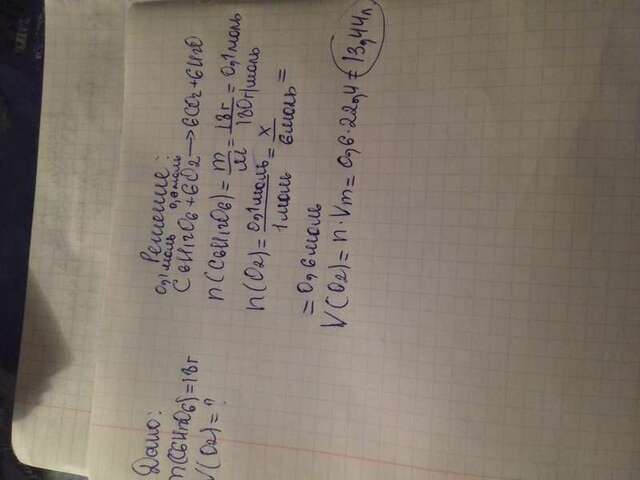 Дано:
m(C6H12O6)=18г
V(O2)=?
Решение
0,1моль 0,6моль
C6H12O6+6O2→6CO2+6H2O
n(C6H12O6)=m/M=18г/180г/моль=0,1моль
n(O2)=0,1моль/1моль=x/6моль=
=0,6моль
V(O2)=n·Vm=0,6·22,4=13,44л